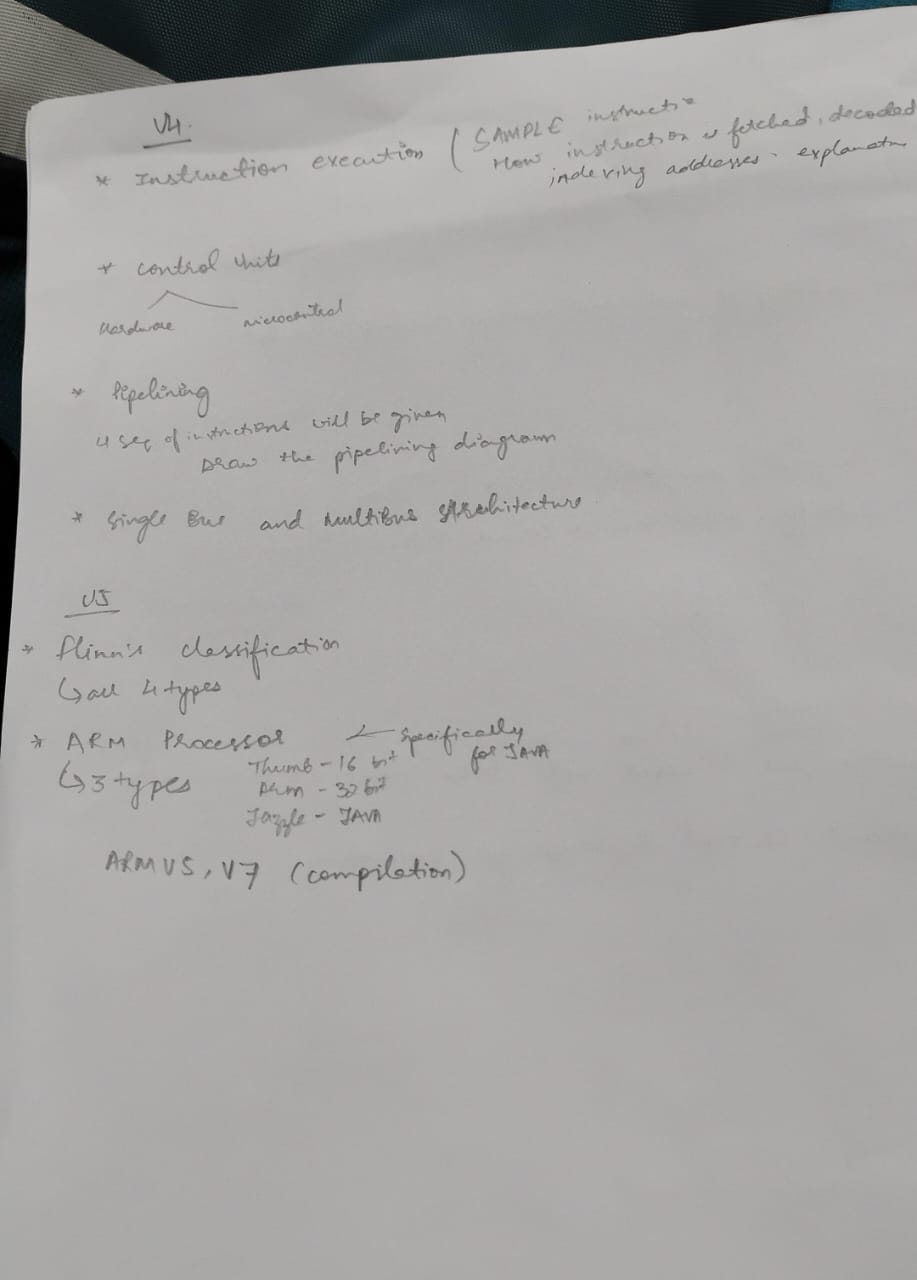 U4.
* Instruction execution ( SAMPLE instructio
How instruction is fetched, decoded
indexing addresses. explanatn
* control units
Hardware microcontrol
* Pipelining
4 seq of instructions will be given
Draw the pipelining diagram
* Single Bus and Multibus Architecture
U5
* flinn's classification
↳ all 4 types
* ARM Processor
↳ 3 types
Thumb - 16 bit
Arm - 32 bit
Jazzle - JAVA
← Specifically
for JAVA
ARM V5, V7 (compilation)